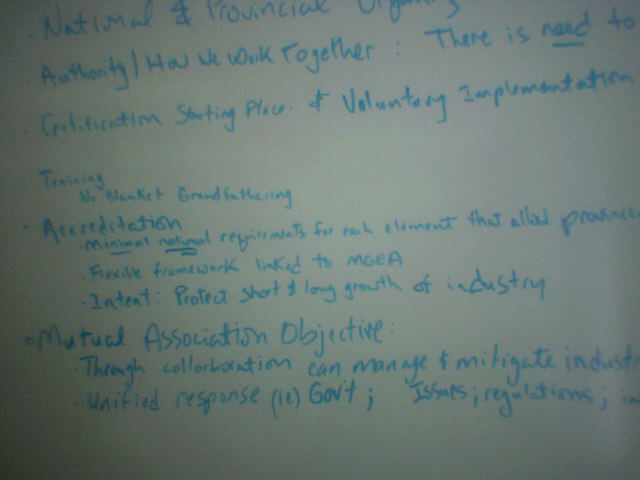 · National & Provincial
· Authority / How We Work Together : There is need to
· Certification Starting Place. & Voluntary Implementation
· Training
No Blanket Grandfathering
· Accreditation
· minimal national requirements for each element that allow
· Flexible framework linked to MGEA
· Intent: Protect short & long growth of industry
· Mutual Association Objective:
· Through collorboration can manage & mitigate
· Unified response (ie) Gov't ; Issues ; regulations ;